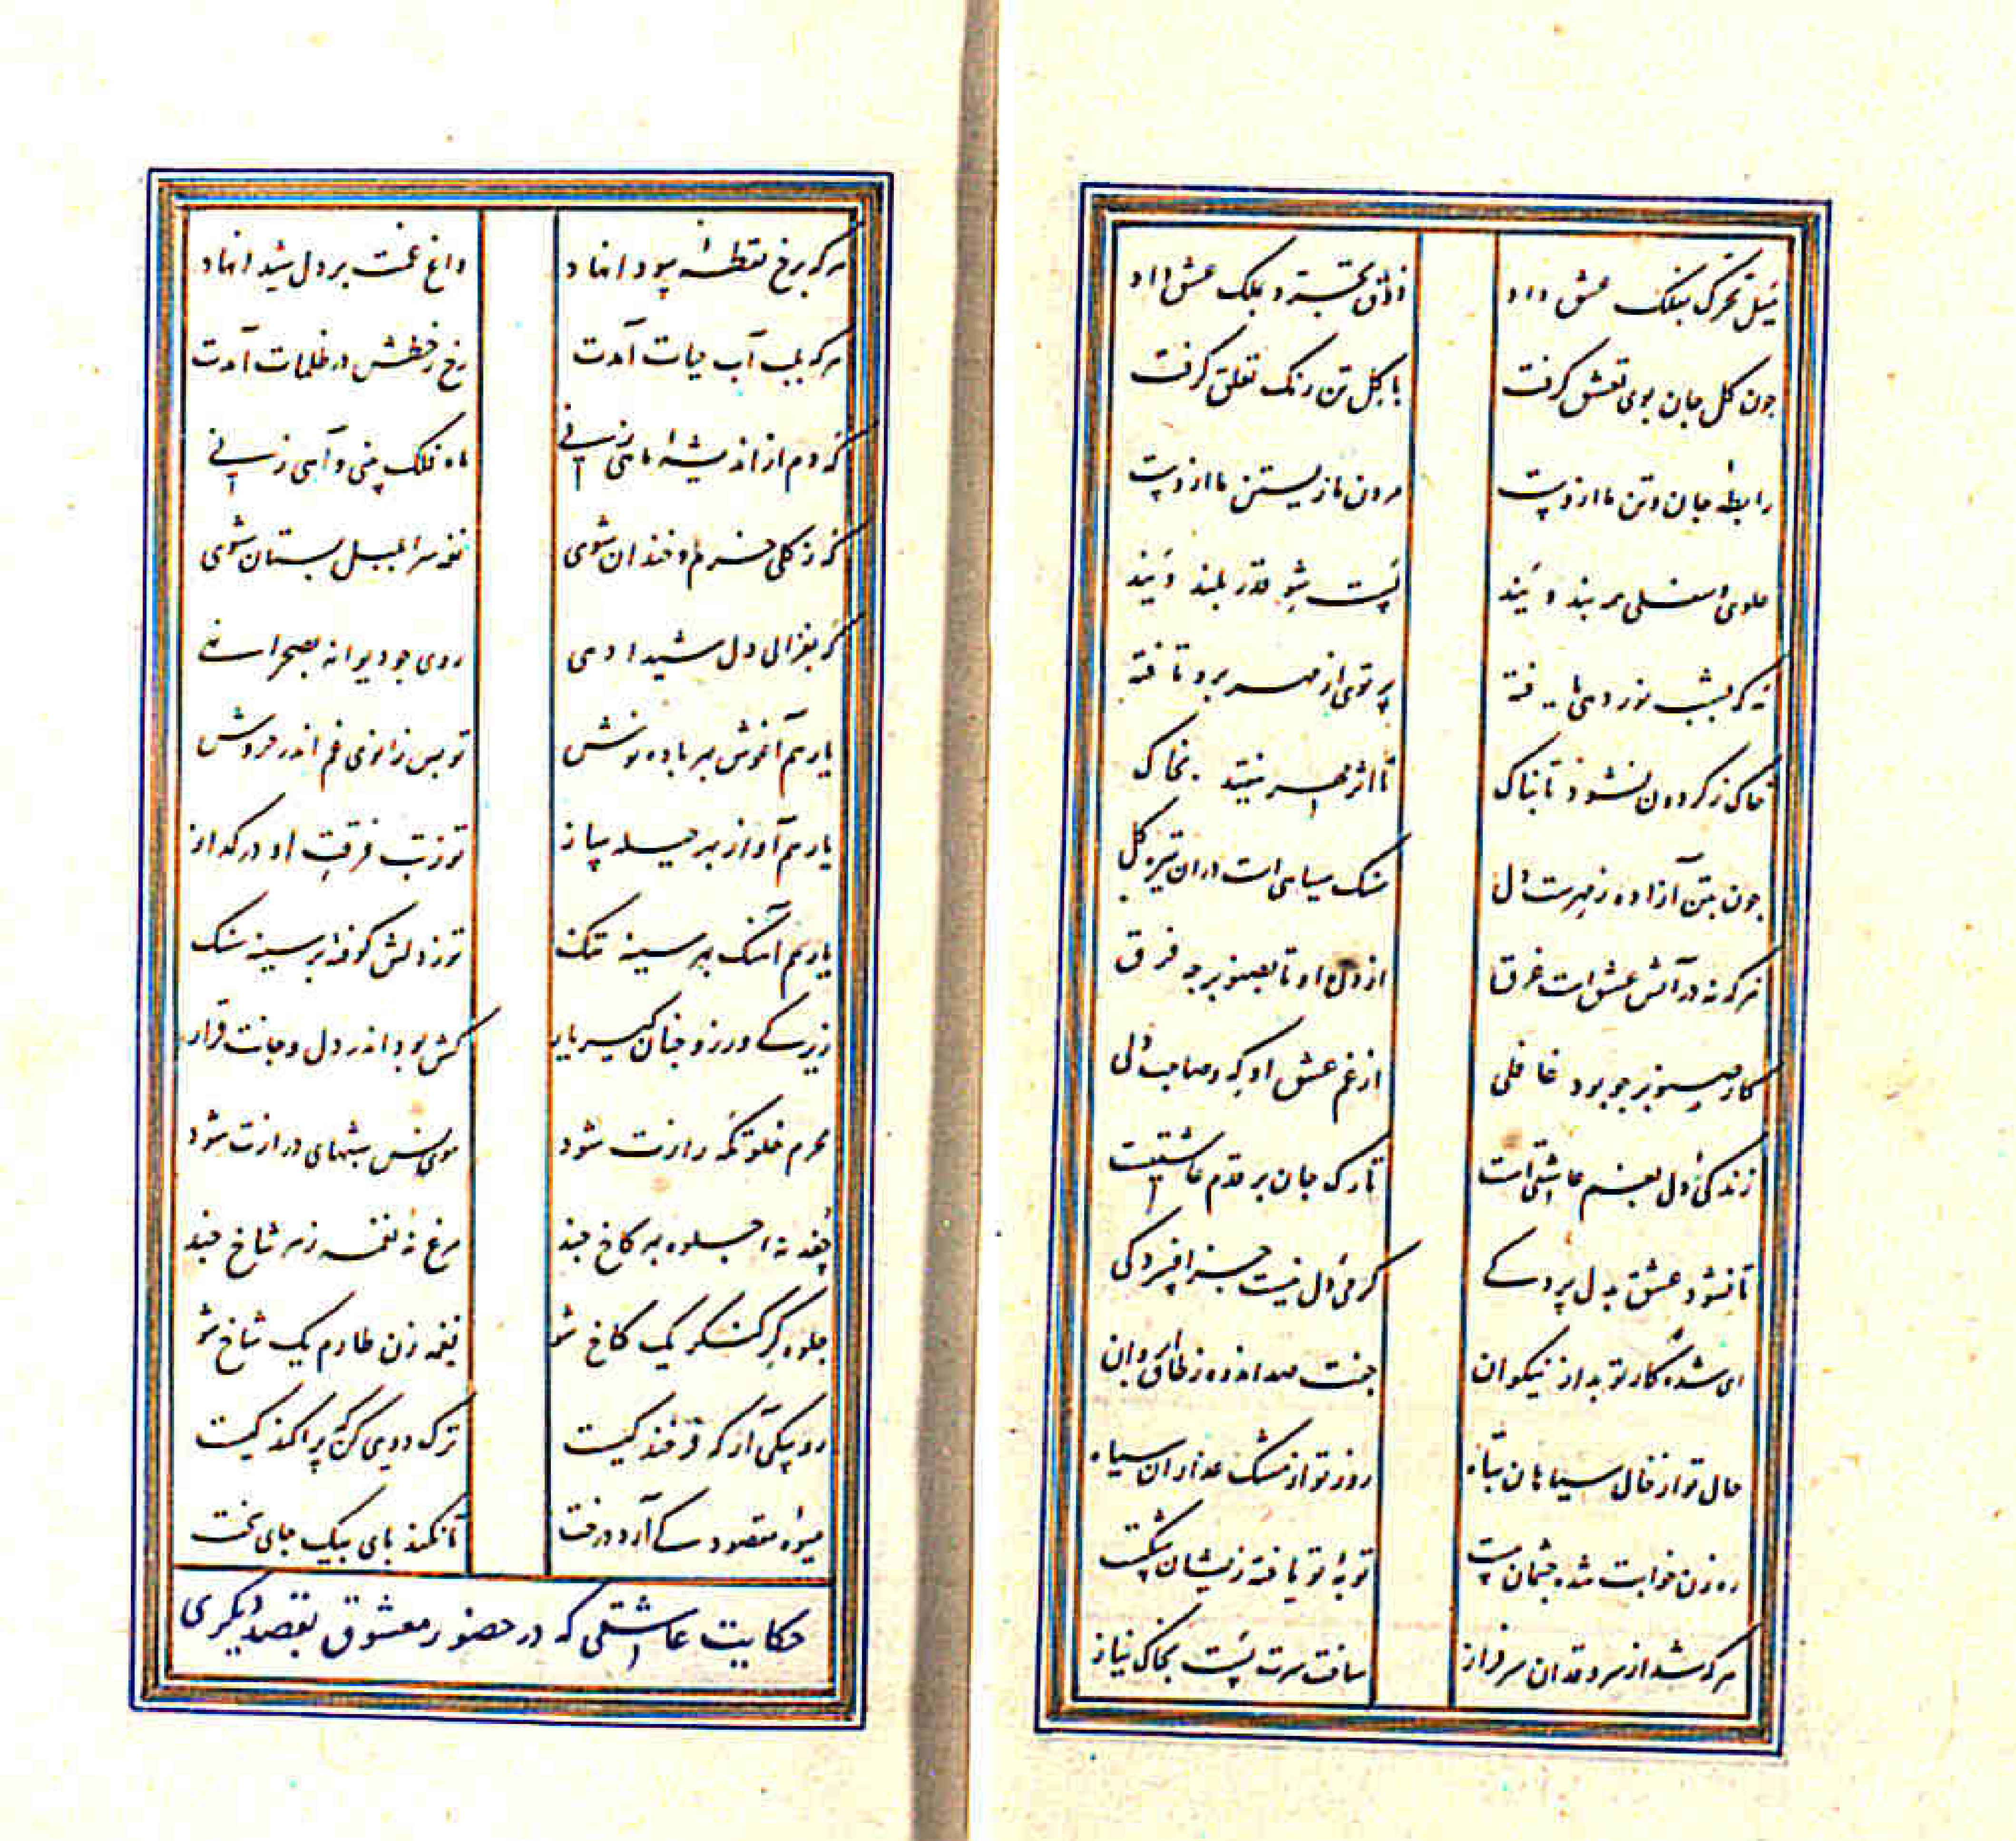 میل تحرک بفلک عشق داد ذوق تجرد بملک عشق داد
چون گل جان بوی تعشق گرفت با گل تن رنگ تعلق گرفت
رابطه جان و تن ما ازوست مردن ما زیستن ما ازوست
علوی و سفلی همه بند ویند پست شو قدر بلند ویند
مه که بشب نوردهی یافته پرتوی از مهر برو تافته
خاک ز گردون نشود تابناک تا اثر مهر نیفتد بخاک
چون بتن آزاده ز مهرست دل سنگ سیاهی است در آن تیره گل
هر که نه در آتش عشق است غرق از دل او تا بصنوبر چه فرق
کار صنوبر چو بود غافلی از غم عشق او که و صاحب دلی
زندگی دل بغم عاشقی است تارک جان بر قدم عاشقیست
تا نشود عشق بدل بردگی گرمی دل نیست جز افسردگی
ای شده کار تو بد از نیکوان جفت صد اندوه ز طاق ابروان
حال تو از خال سیاهان تباه روز تو از مشک عذاران سیاه
ره زن خوابت شده چشمان مست توبه تو یافته زیشان شکست
هر که شد از سرو قدان سرفراز ساخت سرت پست بخاک نیاز
هر که برخ نقطه سودا نهاد داغ غمت بر دل شیدا نهاد
هر که بلب آب حیات آمدت رخ ز خطش در ظلمات آمدت
گه دم از اندیشه ماهی زنی ماه فلک بینی و آهی زنی
گه ز گلی خرم و خندان شوی نغمه سرا بلبل بستان شوی
گه بغزالی دل شیدا دهی روی چو دیوانه بصحرا نهی
یار هم آغوش بهر باده نوش تو بس زانوی غم اندر خروش
یار هم آواز بهر حیله ساز تو ز تب فرقت او در گداز
یار هم آهنگ بهر سینه تنگ تو ز دلش کوفته بر سینه سنگ
زیرکی ورز و چنان گیر یار کش بود اندر دل و جانت قرار
محرم خلوتگه رازت شود مونس شبهای درازت شود
جغد نه جلوه بهر کاخ چند مرغ نه نغمه ز هر شاخ چند
جلوه گر کنگر یک کاخ شو نغمه زن طارم یک شاخ شو
رو بیکی آر که فرخندگیست ترک دویی کن که پراکندگیست
میوه مقصود کی آرد درخت تا نکند پای بیک جای سخت
حکایت عاشقی که در حضور معشوق بقصد دیگری